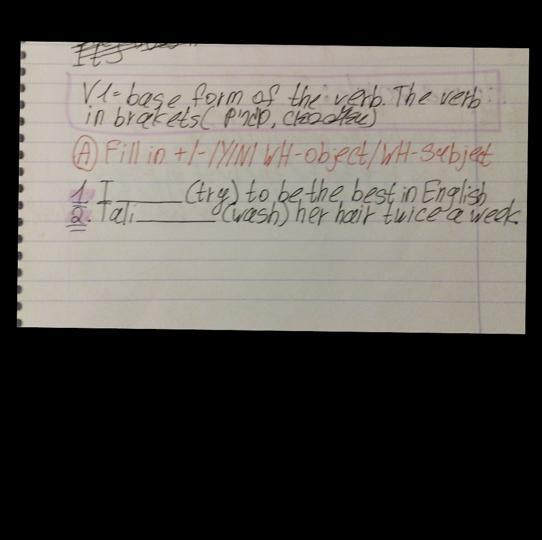 Its
V1=base form of the verb. The verb
in brakets(
(A) Fill in +/-/Y/N/ WH-object/WH-subject
1. I ______ (try) to be the best in English
2. Tali ______ (wash) her hair twice a week.